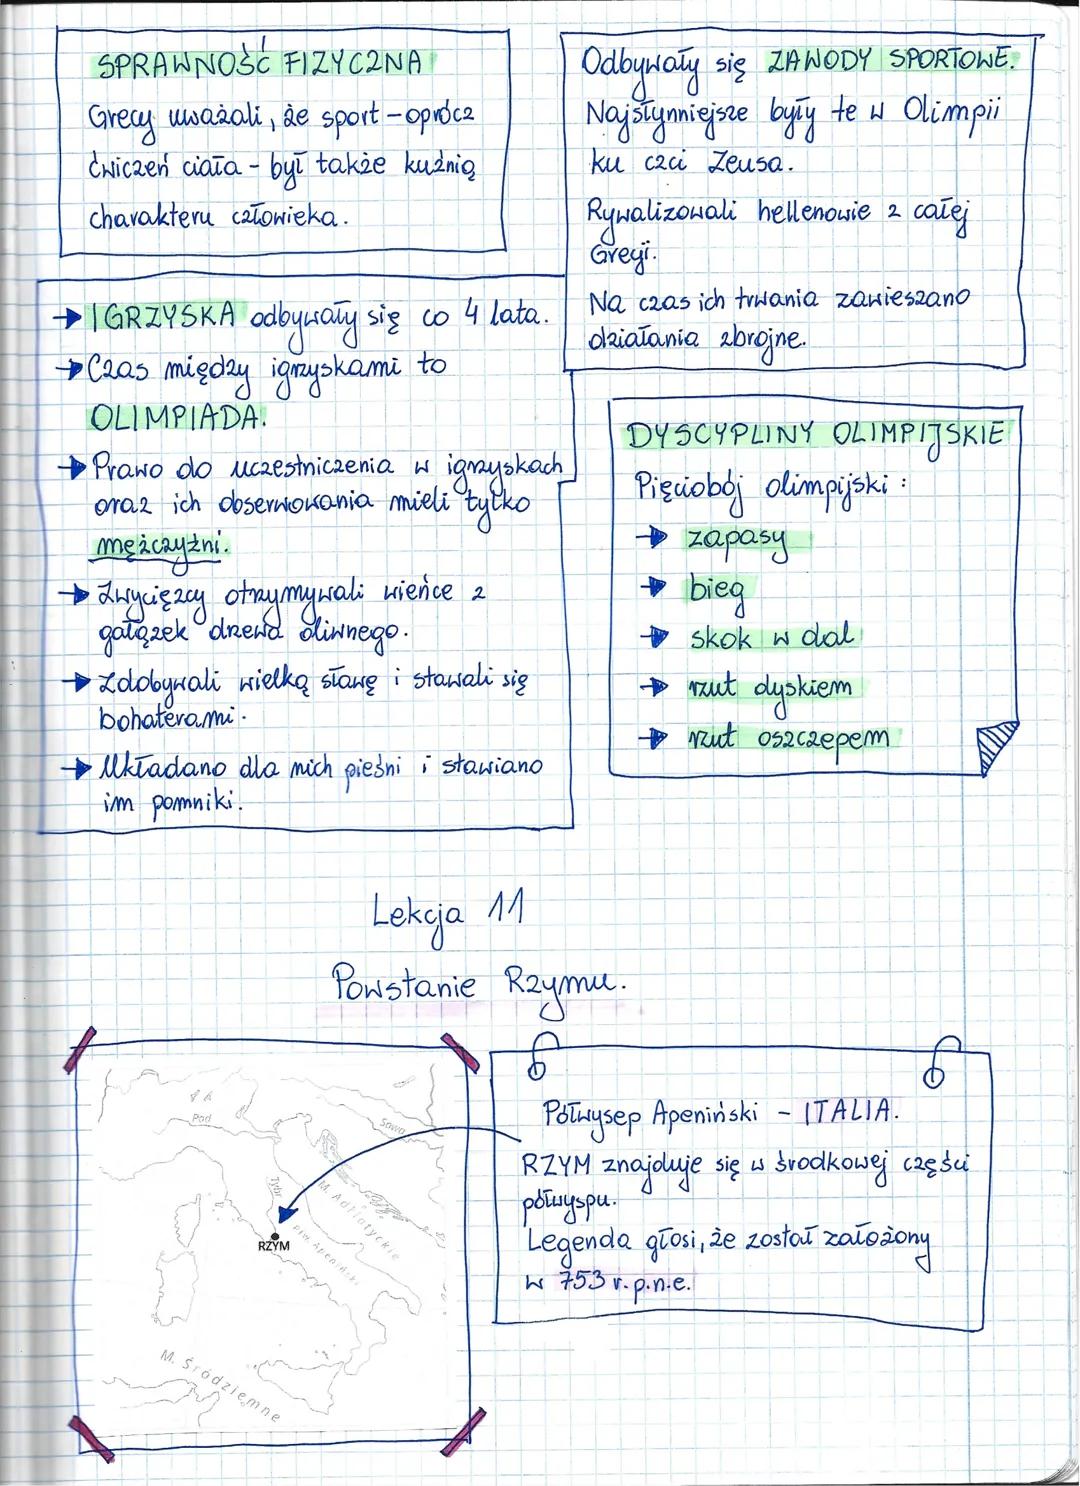 SPRAWNOŚĆ FIZYCZNA
Grecy uważali, że sport - oprócz
ćwiczeń ciała - był także kuźnią
charakteru człowieka.
Odbywały się ZAWODY SPORTOWE.
Najsłynniejsze były te w Olimpii
ku czci Zeusa.
Rywalizowali hellenowie z całej
Grecji.
Na czas ich trwania zawieszano
działania zbrojne.
→ IGRZYSKA odbywały się co 4 lata.
→ Czas między igrzyskami to
OLIMPIADA.
→ Prawo do uczestniczenia w igrzyskach
oraz ich obserwowania mieli tylko
mężczyźni.
→ Zwycięzcy otrzymywali wieńce z
gałązek drzewa oliwnego.
→ Zdobywali wielką sławę i stawali się
bohaterami.
→ Układano dla nich pieśni i stawiano
im pomniki.
DYSCYPLINY OLIMPIJSKIE
Pięciobój olimpijski:
→ zapasy
→ bieg
→ skok w dal
→ rzut dyskiem
→ rzut oszczepem
Lekcja 11
Powstanie Rzymu.
Pad
Sawa
Tybr
M. Adriatyckie
Płw. Apeniński
RZYM
M. Śródziemne
Półwysep Apeniński - ITALIA.
RZYM znajduje się w środkowej części
półwyspu.
Legenda głosi, że został założony
w 753 r. p.n.e.